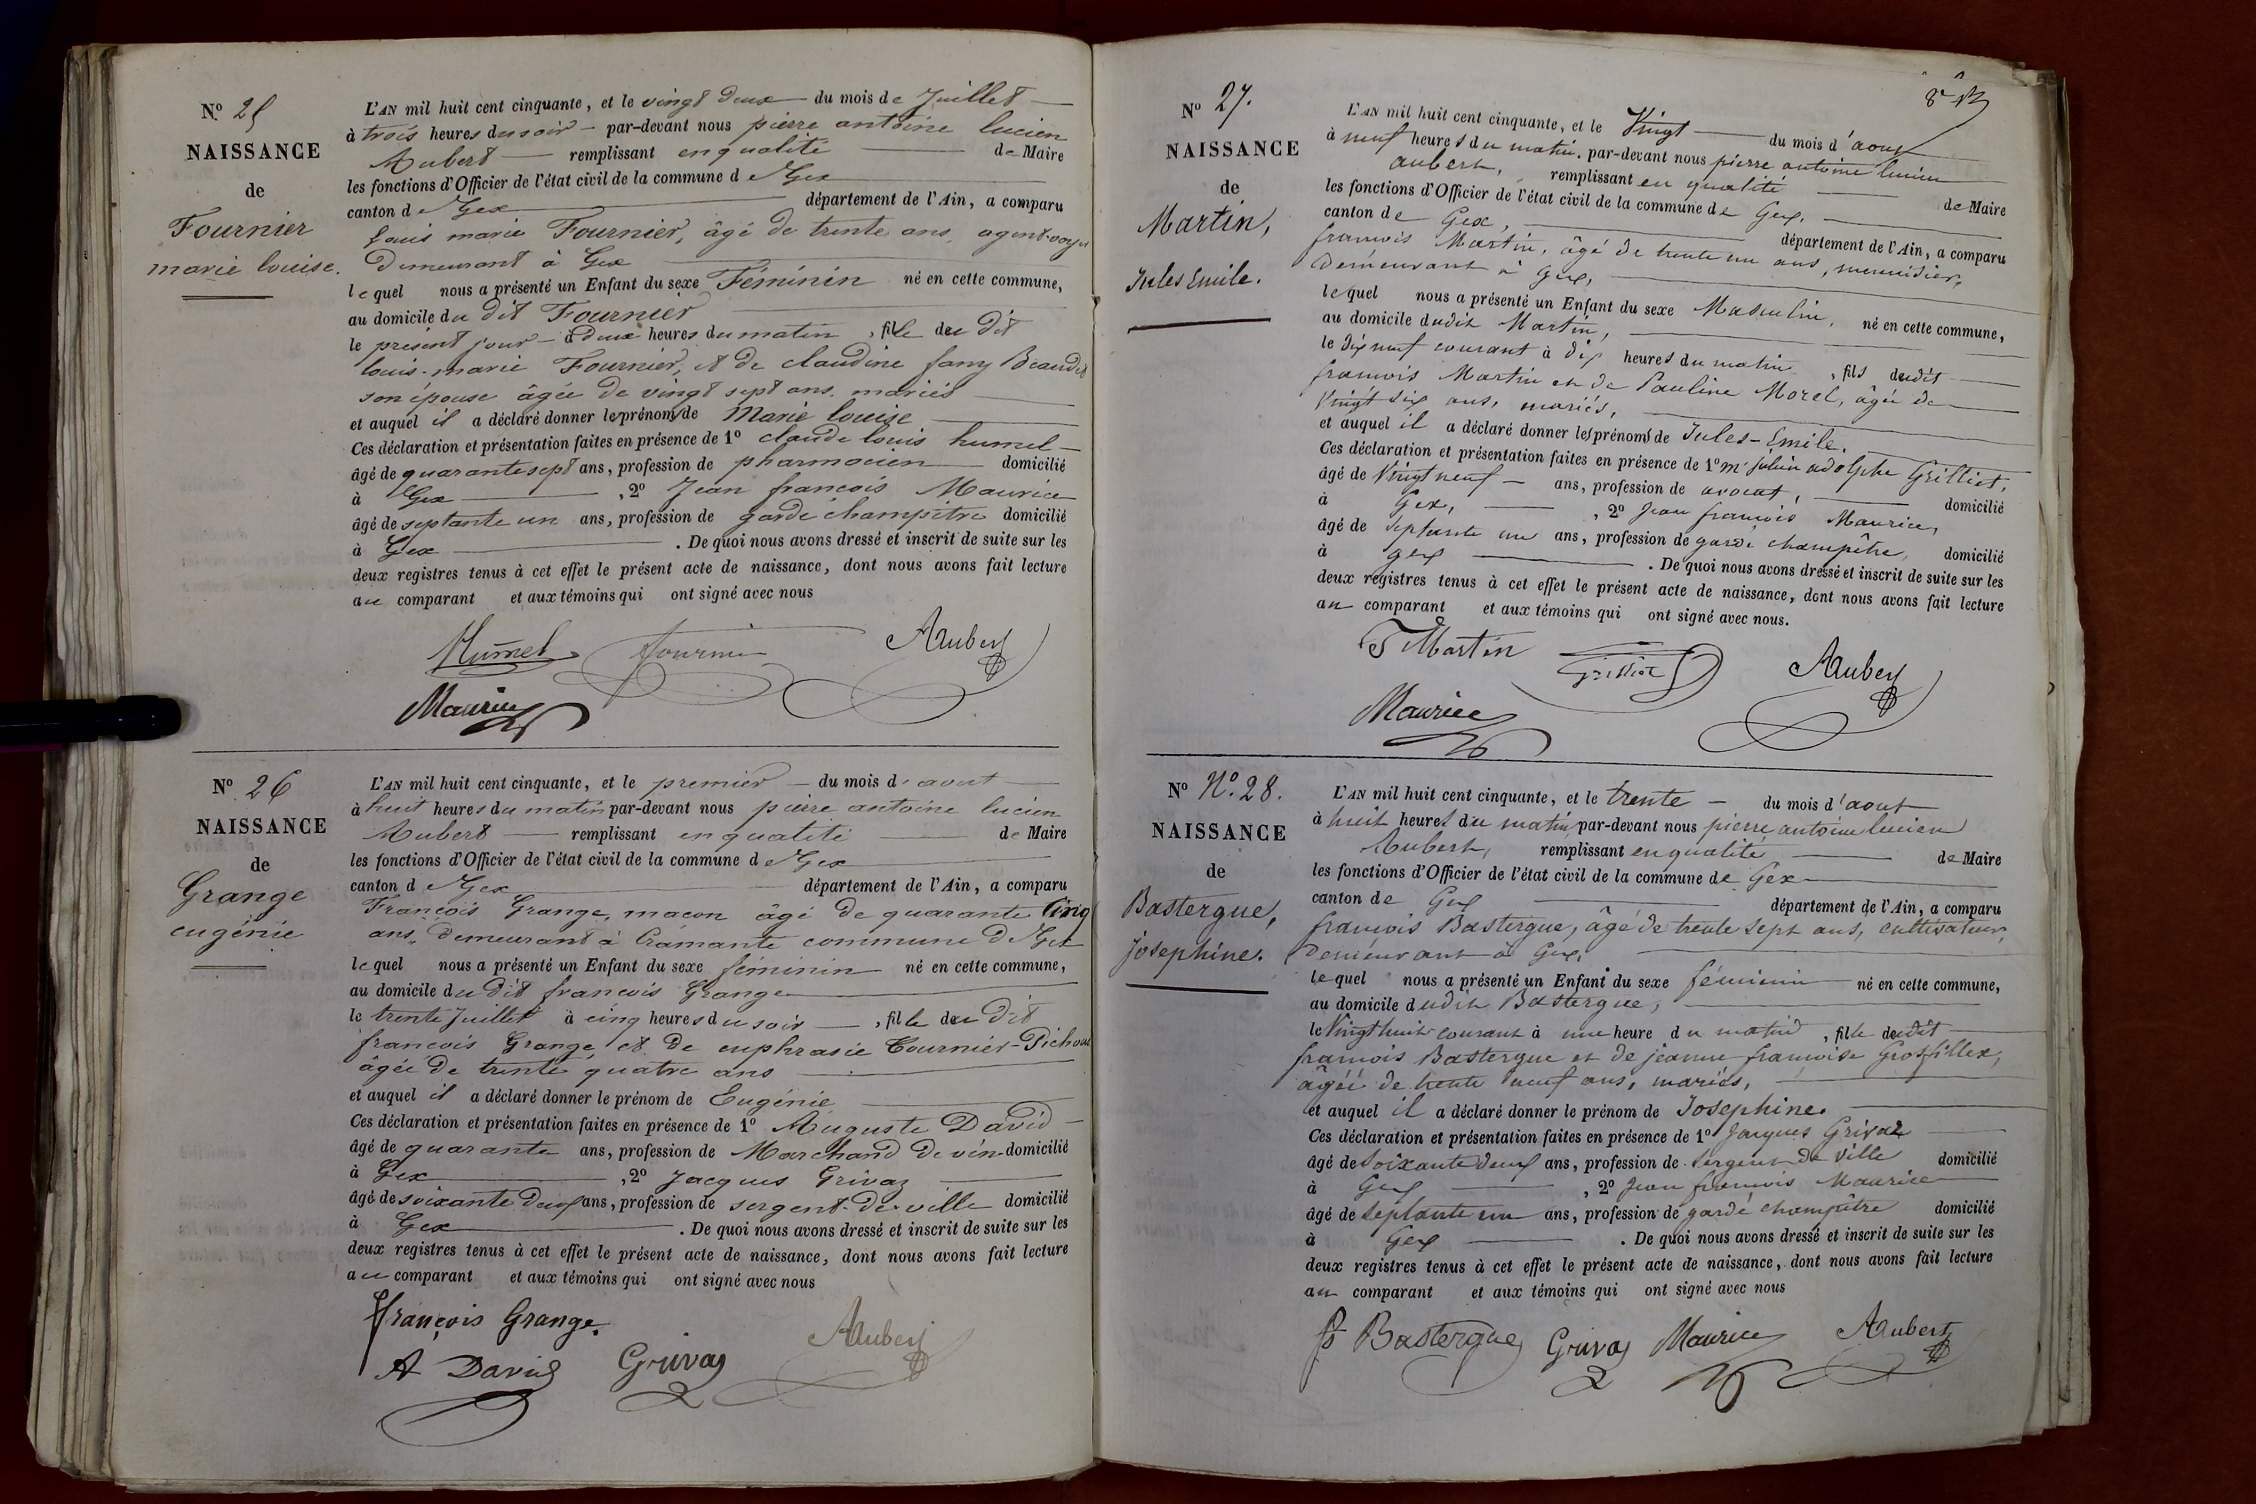 N.º 25
NAISSANCE
de
Fournier
marie louise.
L'AN mil huit cent cinquante, et le vingt deux du mois de Juillet
à trois heures du soir par-devant nous pierre antoine lucien
Aubert remplissant en qualité de Maire
les fonctions d'Officier de l'état civil de la commune de Gex
canton de Gex département de l'Ain, a comparu
louis marie Fournier, âgé de trente ans, agent-voyer
demeurant à Gex
lequel nous a présenté un Enfant du sexe Féminin né en cette commune,
au domicile du dit Fournier
le présent jour à deux heures du matin, fille du dit
louis-marie Fournier, et de claudine fany
son épouse âgée de vingt sept ans. mariés
et auquel il a déclaré donner les prénoms de Marie louise
Ces déclaration et présentation faites en présence de 1º claude louis humel
âgé de quarante sept ans, profession de pharmacien domicilié
à Gex, 2º Jean francois Maurice
âgé de septante un ans, profession de garde champêtre domicilié
à Gex. De quoi nous avons dressé et inscrit de suite sur les
deux registres tenus à cet effet le présent acte de naissance, dont nous avons fait lecture
au comparant et aux témoins qui ont signé avec nous
Humel Fournier Aubert
Maurice
Nº 26
NAISSANCE
de
Grange
eugénie
L'AN mil huit cent cinquante, et le premier du mois d'aout
à huit heures du matin par-devant nous pierre antoine lucien
Aubert remplissant en qualité de Maire
les fonctions d'Officier de l'état civil de la commune de Gex
canton de Gex département de l'Ain, a comparu
François Grange, macon âgé de quarante cinq
ans, demeurant à Cramante commune de Gex
lequel nous a présenté un Enfant du sexe féminin né en cette commune,
au domicile du dit francois Grange
le trente Juillet à cinq heures du soir, fille du dit
francois Grange et de euphrasie Tournier-Pichon
âgée de trente quatre ans
et auquel il a déclaré donner le prénom de Eugénie
Ces déclaration et présentation faites en présence de 1º Auguste David
âgé de quarante ans, profession de Marchand de vin domicilié
à Gex, 2º Jacques Grivaz
âgé de soixante deux ans, profession de sergent-de-ville domicilié
à Gex. De quoi nous avons dressé et inscrit de suite sur les
deux registres tenus à cet effet le présent acte de naissance, dont nous avons fait lecture
au comparant et aux témoins qui ont signé avec nous
françois Grange.
A David Grivaz Aubert
Nº 27.
NAISSANCE
de
Martin,
Jules Emile.
L'AN mil huit cent cinquante, et le Vingt du mois d'aout
à neuf heures du matin, par-devant nous pierre antoine lucien
aubert, remplissant en qualité de Maire
les fonctions d'Officier de l'état civil de la commune de Gex,
canton de Gex, département de l'Ain, a comparu
francois Martin, âgé de trente un ans, menuisier,
demeurant à Gex,
lequel nous a présenté un Enfant du sexe Masculin, né en cette commune,
au domicile dudit Martin,
le dix neuf courant à dix heures du matin, fils dudit
francois Martin et de Pauline Morel, âgée de
Vingt six ans, mariés,
et auquel il a déclaré donner les prénoms de Jules-Emile.
Ces déclaration et présentation faites en présence de 1º mr julien adolphe Grilliet,
âgé de Vingt neuf ans, profession de avocat, domicilié
à Gex, 2º Jean francois Maurice,
âgé de septante un ans, profession de garde champêtre, domicilié
à gex. De quoi nous avons dressé et inscrit de suite sur les
deux registres tenus à cet effet le présent acte de naissance, dont nous avons fait lecture
au comparant et aux témoins qui ont signé avec nous.
F Martin Grilliet Aubert
Maurice
Nº Nº. 28.
NAISSANCE
de
Bastergue,
Josephine.
L'AN mil huit cent cinquante, et le trente du mois d'aout
à huit heures du matin, par-devant nous pierre antoine lucien
Aubert, remplissant en qualité de Maire
les fonctions d'Officier de l'état civil de la commune de Gex
canton de Gex département de l'Ain, a comparu
francois Bastergue, âgé de trente sept ans, cultivateur,
demeurant à Gex,
lequel nous a présenté un Enfant du sexe féminin né en cette commune,
au domicile dudit Bastergue,
le Vingt huit courant à une heure du matin, fille dudit
francois Bastergue et de jeanne francoise Grosfillex,
âgée de trente neuf ans, mariés,
et auquel il a déclaré donner le prénom de Josephine.
Ces déclaration et présentation faites en présence de 1º Jacques Grivaz
âgé de Soixante deux ans, profession de Sergent de Ville domicilié
à Gex, 2º Jean francois Maurice
âgé de Septante un ans, profession de garde champêtre domicilié
à Gex. De quoi nous avons dressé et inscrit de suite sur les
deux registres tenus à cet effet le présent acte de naissance, dont nous avons fait lecture
au comparant et aux témoins qui ont signé avec nous
fs Bastergue Grivaz Maurice Aubert